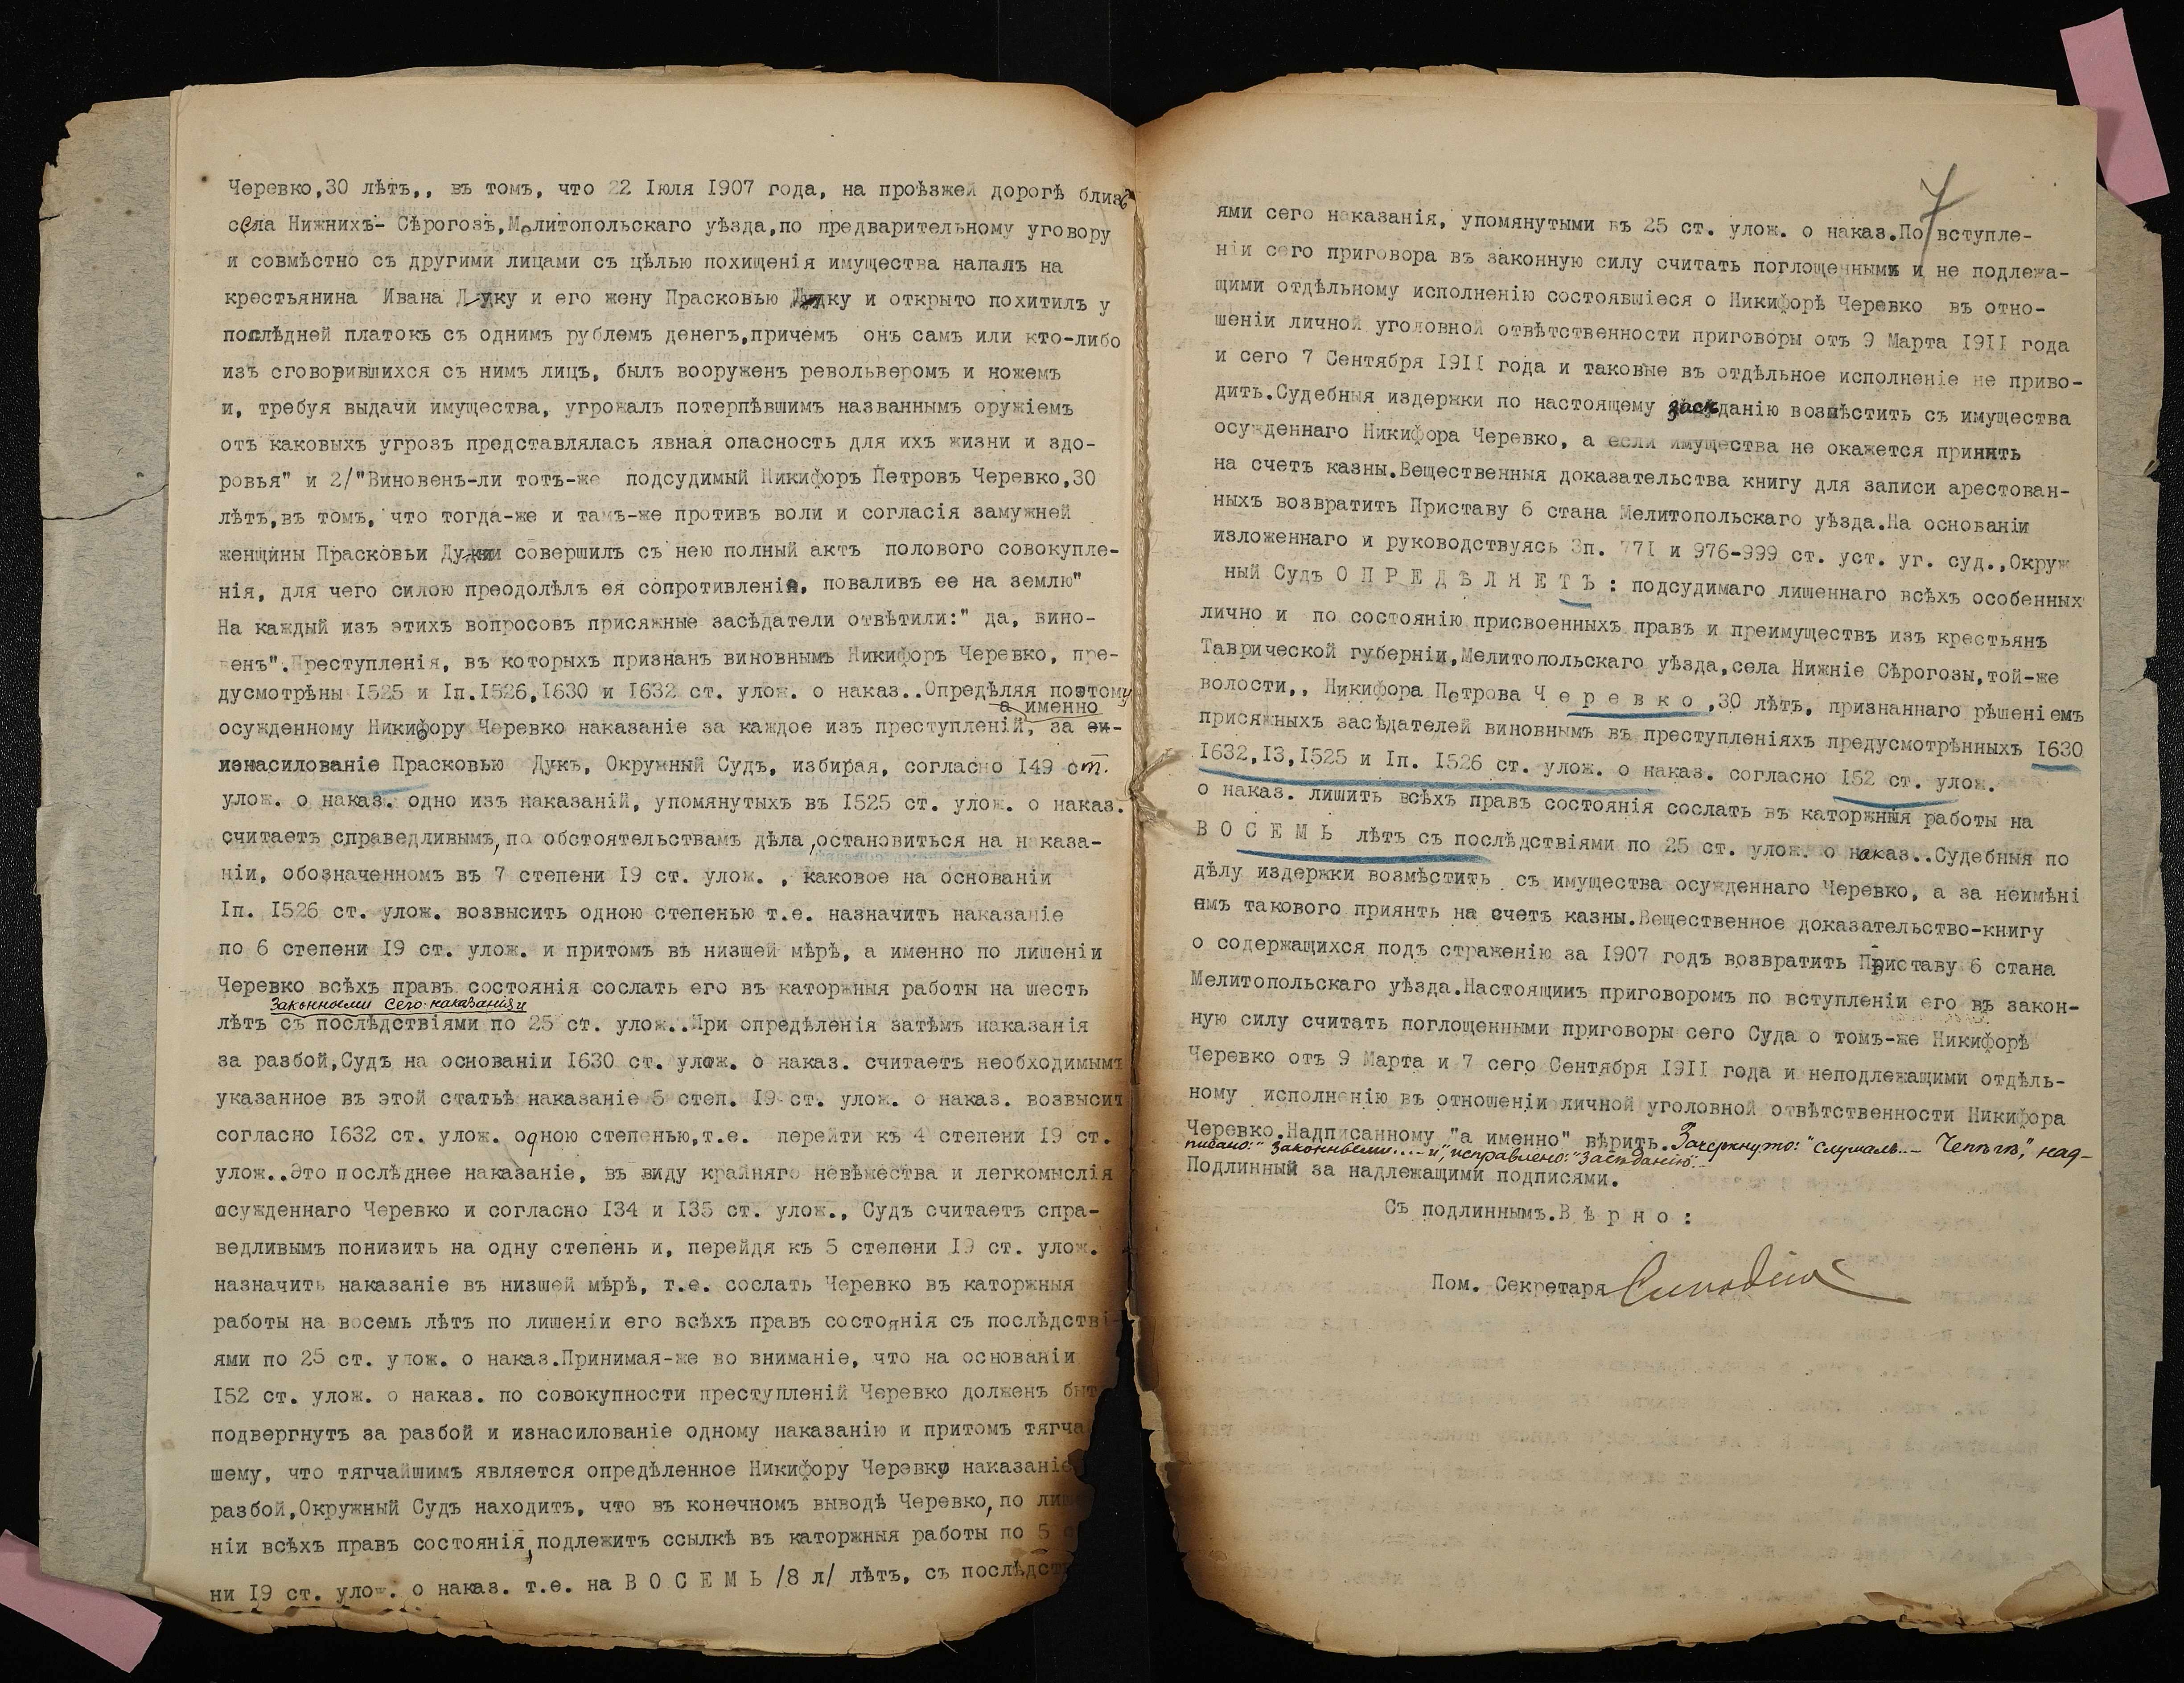 Черевко,30 лѣтъ,, въ томъ, что 22 Іюля 1907 года, на проѣзжей дорогѣ близъ
села Нижнихъ- Сѣрогозъ,Мелитопольскаго уѣзда,по предварительному уговору
и совмѣстно съ другими лицами съ цѣлью похищенія имущества напалъ на
крестьянина Ивана Дуку и его жену Прасковью Дуку и открыто похитилъ у
послѣдней платокъ съ однимъ рублемъ денегъ,причемъ онъ самъ или кто-либо
изъ сговорившихся съ нимъ лицъ, былъ вооруженъ револьверомъ и ножемъ
и, требуя выдачи имущества, угрожалъ потерпѣвшимъ названнымъ оружіемъ
отъ каковыхъ угрозъ представлялась явная опасность для ихъ жизни и здо-
ровья" и 2/"Виновенъ-ли тотъ-же подсудимый Никифоръ Петровъ Черевко,30
лѣтъ,въ томъ, что тогда-же и тамъ-же противъ воли и согласія замужней
женщины Прасковьи Дуки совершилъ съ нею полный актъ полового совокупле-
нія, для чего силою преодолѣлъ ея сопротивленіе, поваливъ ее на землю"
На каждый изъ этихъ вопросовъ присяжные засѣдатели отвѣтили:" да, вино-
венъ".Преступленія, въ которыхъ признанъ виновнымъ Никифоръ Черевко, пре-
дусмотрѣны 1525 и Іп.1526,1630 и 1632 ст. улож. о наказ..Опредѣляя поэтому
а именно
осужденному Никифору Черевко наказаніе за каждое изъ преступленій, за
изнасилованіе Прасковью Дукъ, Окружный Судъ, избирая, согласно 149 ст.
улож. о наказ. одно изъ наказаній, упомянутыхъ въ 1525 ст. улож. о наказ.
считаетъ справедливымъ,по обстоятельствамъ дѣла,остановиться на наказа-
ніи, обозначенномъ въ 7 степени 19 ст. улож. , каковое на основаніи
Іп. 1526 ст. улож. возвысить одною степенью т.е. назначить наказаніе
по 6 степени 19 ст. улож. и притомъ въ низшей мѣрѣ, а именно по лишеніи
Черевко всѣхъ правъ состоянія сослать его въ каторжныя работы на шесть
законными сего наказанія
лѣтъ съ послѣдствіями по 25 ст. улож..При опредѣленія затѣмъ наказанія
за разбой,Судъ на основаніи 1630 ст. улож. о наказ. считаетъ необходимымъ
указанное въ этой статьѣ наказаніе 5 степ. 19 ст. улож. о наказ. возвысит
согласно 1632 ст. улож. одною степенью,т.е. перейти къ 4 степени 19 ст.
улож..Это послѣднее наказаніе, въ виду крайняго невѣжества и легкомыслія
осужденнаго Черевко и согласно 134 и 135 ст. улож., Судъ считаетъ спра-
ведливымъ понизить на одну степень и, перейдя къ 5 степени 19 ст. улож.
назначить наказаніе въ низшей мѣрѣ, т.е. сослать Черевко въ каторжныя
работы на восемь лѣтъ по лишеніи его всѣхъ правъ состоянія съ послѣдстві-
ями по 25 ст. улож. о наказ.Принимая-же во вниманіе, что на основаніи
152 ст. улож. о наказ. по совокупности преступленій Черевко долженъ быт
подвергнутъ за разбой и изнасилованіе одному наказанію и притомъ тягча
шему, что тягчайшимъ является опредѣленное Никифору Черевко наказаніе
разбой,Окружный Судъ находитъ, что въ конечномъ выводѣ Черевко,по лише
ніи всѣхъ правъ состоянія,подлежитъ ссылкѣ въ каторжныя работы по 5 с
ни 19 ст. улож. о наказ. т.е. на В О С Е М Ь /8 л/ лѣтъ, съ послѣдст
7
ями сего наказанія, упомянутыми въ 25 ст. улож. о наказ.По вступле-
ніи сего приговора въ законную силу считать поглощенными и не подлежа-
щими отдѣльному исполненію состоявшіеся о Никифорѣ Черевко въ отно-
шеніи личной уголовной отвѣтственности приговоры отъ 9 Марта 1911 года
и сего 7 Сентября 1911 года и таковые въ отдѣльное исполненіе не приво-
дить.Судебныя издержки по настоящему засѣданію возмѣстить съ имущества
осужденнаго Никифора Черевко, а если имущества не окажется принять
на счетъ казны.Вещественныя доказательства книгу для записи арестован-
ныхъ возвратить Приставу 6 стана Мелитопольскаго уѣзда.На основаніи
изложеннаго и руководствуясь 3п. 771 и 976-999 ст. уст. уг. суд.,Окруж
ный Судъ О П Р Е Д Ѣ Л Я Е Т Ъ : подсудимаго лишеннаго всѣхъ особенныхъ
лично и по состоянію присвоенныхъ правъ и преимуществъ изъ крестьянъ
Таврической губерніи,Мелитопольскаго уѣзда,села Нижніе Сѣрогозы,той-же
волости,, Никифора Петрова Ч е р е в к о ,30 лѣтъ, признаннаго рѣшеніемъ
присяжныхъ засѣдателей виновнымъ въ преступленіяхъ предусмотрѣнныхъ 1630
1632,13,1525 и Іп. 1526 ст. улож. о наказ. согласно 152 ст. улож.
о наказ. лишить всѣхъ правъ состоянія сослать въ каторжныя работы на
В О С Е М Ь лѣтъ съ послѣдствіями по 25 ст. улож. о наказ..Судебныя по
дѣлу издержки возмѣстить съ имущества осужденнаго Черевко, а за неимѣні
емъ такового приянть на счетъ казны.Вещественное доказательство-книгу
о содержащихся подъ страженію за 1907 годъ возвратить Приставу 6 стана
Мелитопольскаго уѣзда.Настоящимъ приговоромъ по вступленіи его въ закон-
ную силу считать поглощенными приговоры сего Суда о томъ-же Никифорѣ
Черевко отъ 9 Марта и 7 сего Сентября 1911 года и неподлежащими отдѣль-
ному исполненію въ отношеніи личной уголовной отвѣтственности Никифора
Черевко.Надписанному "а именно" вѣрить. Зачеркнуто: над-
писано: "законными....и", исправлено: "засѣданію".-
Подлинный за надлежащими подписями.
Съ подлиннымъ.В ѣ р н о :
Пом. Секретаря